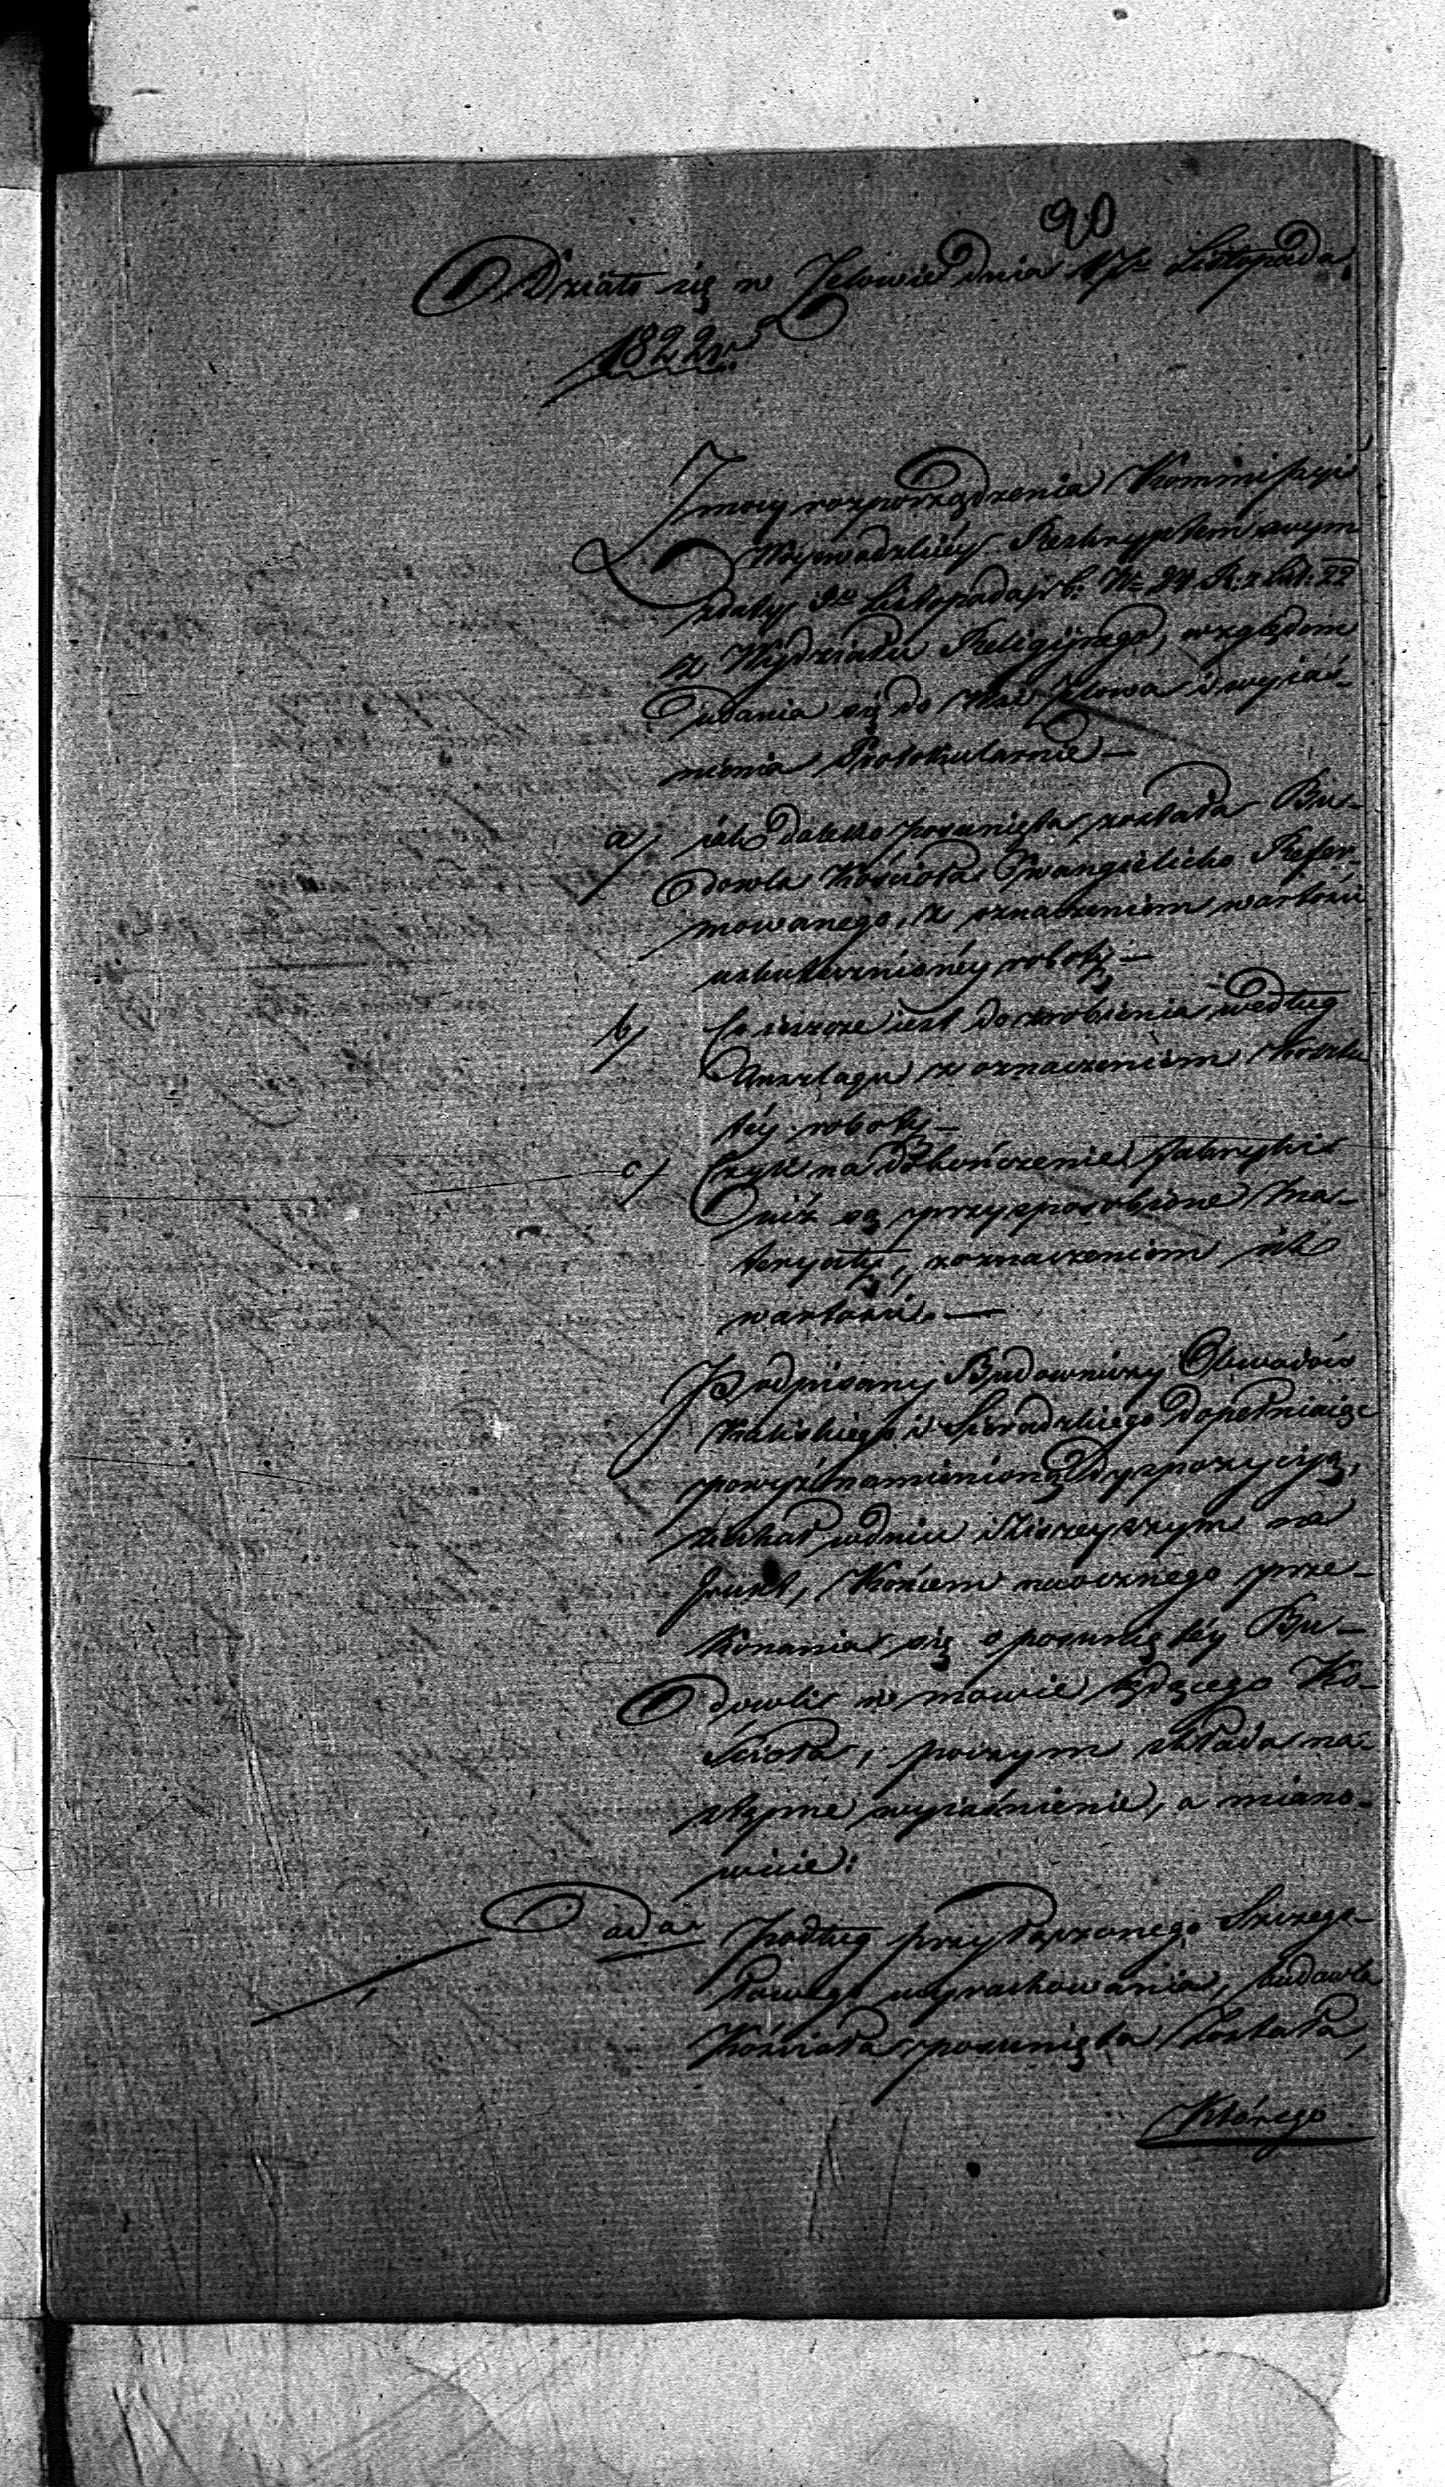 90
Działo się w Zelowie dnia 17. Listopada
1822r.
Z mocy rozporządzenia Kommissyi
Woiewodzkiéy Reskryptem swym
z daty 9. Listopada r. b. N. 24
z Wydziału Religijnego, względem
udania się do Wsi Zelowa i wyiaś-
nienia Protokularnie —
a/ iak daleko posunięta została Bu-
dowla Kościoła Ewangielicko Refor-
mowanego, z oznaczeniem wartości
uskutecznionéy roboty, —
b/ Co ieszcze iest do zrobienia według
Anszlagu z oznaczeniem kosztu
téy roboty —
c/ Czyli na dokończenie fabryki
iuż są przysposobione ma-
teryały, z oznaczeniem ich
wartości. —
Podpisany Budowniczy Obwodów
Kaliskiego i Sieradzkiego dopełniaiąc
powyż namienioną Dyspozycyą,
ziechał w dniu dzisieyszym na
grunt, końcem naocznego prze-
konania się o posunię téy Bu-
dowli w mowie będącego Ko-
ścioła, poczym składa na-
stępne wyiaśnienie, a miano-
wicie:
ad a. Podług przyłączonego Szczegó-
łowego wyrachowania, budowla
Kościoła posunięta została,
Którego